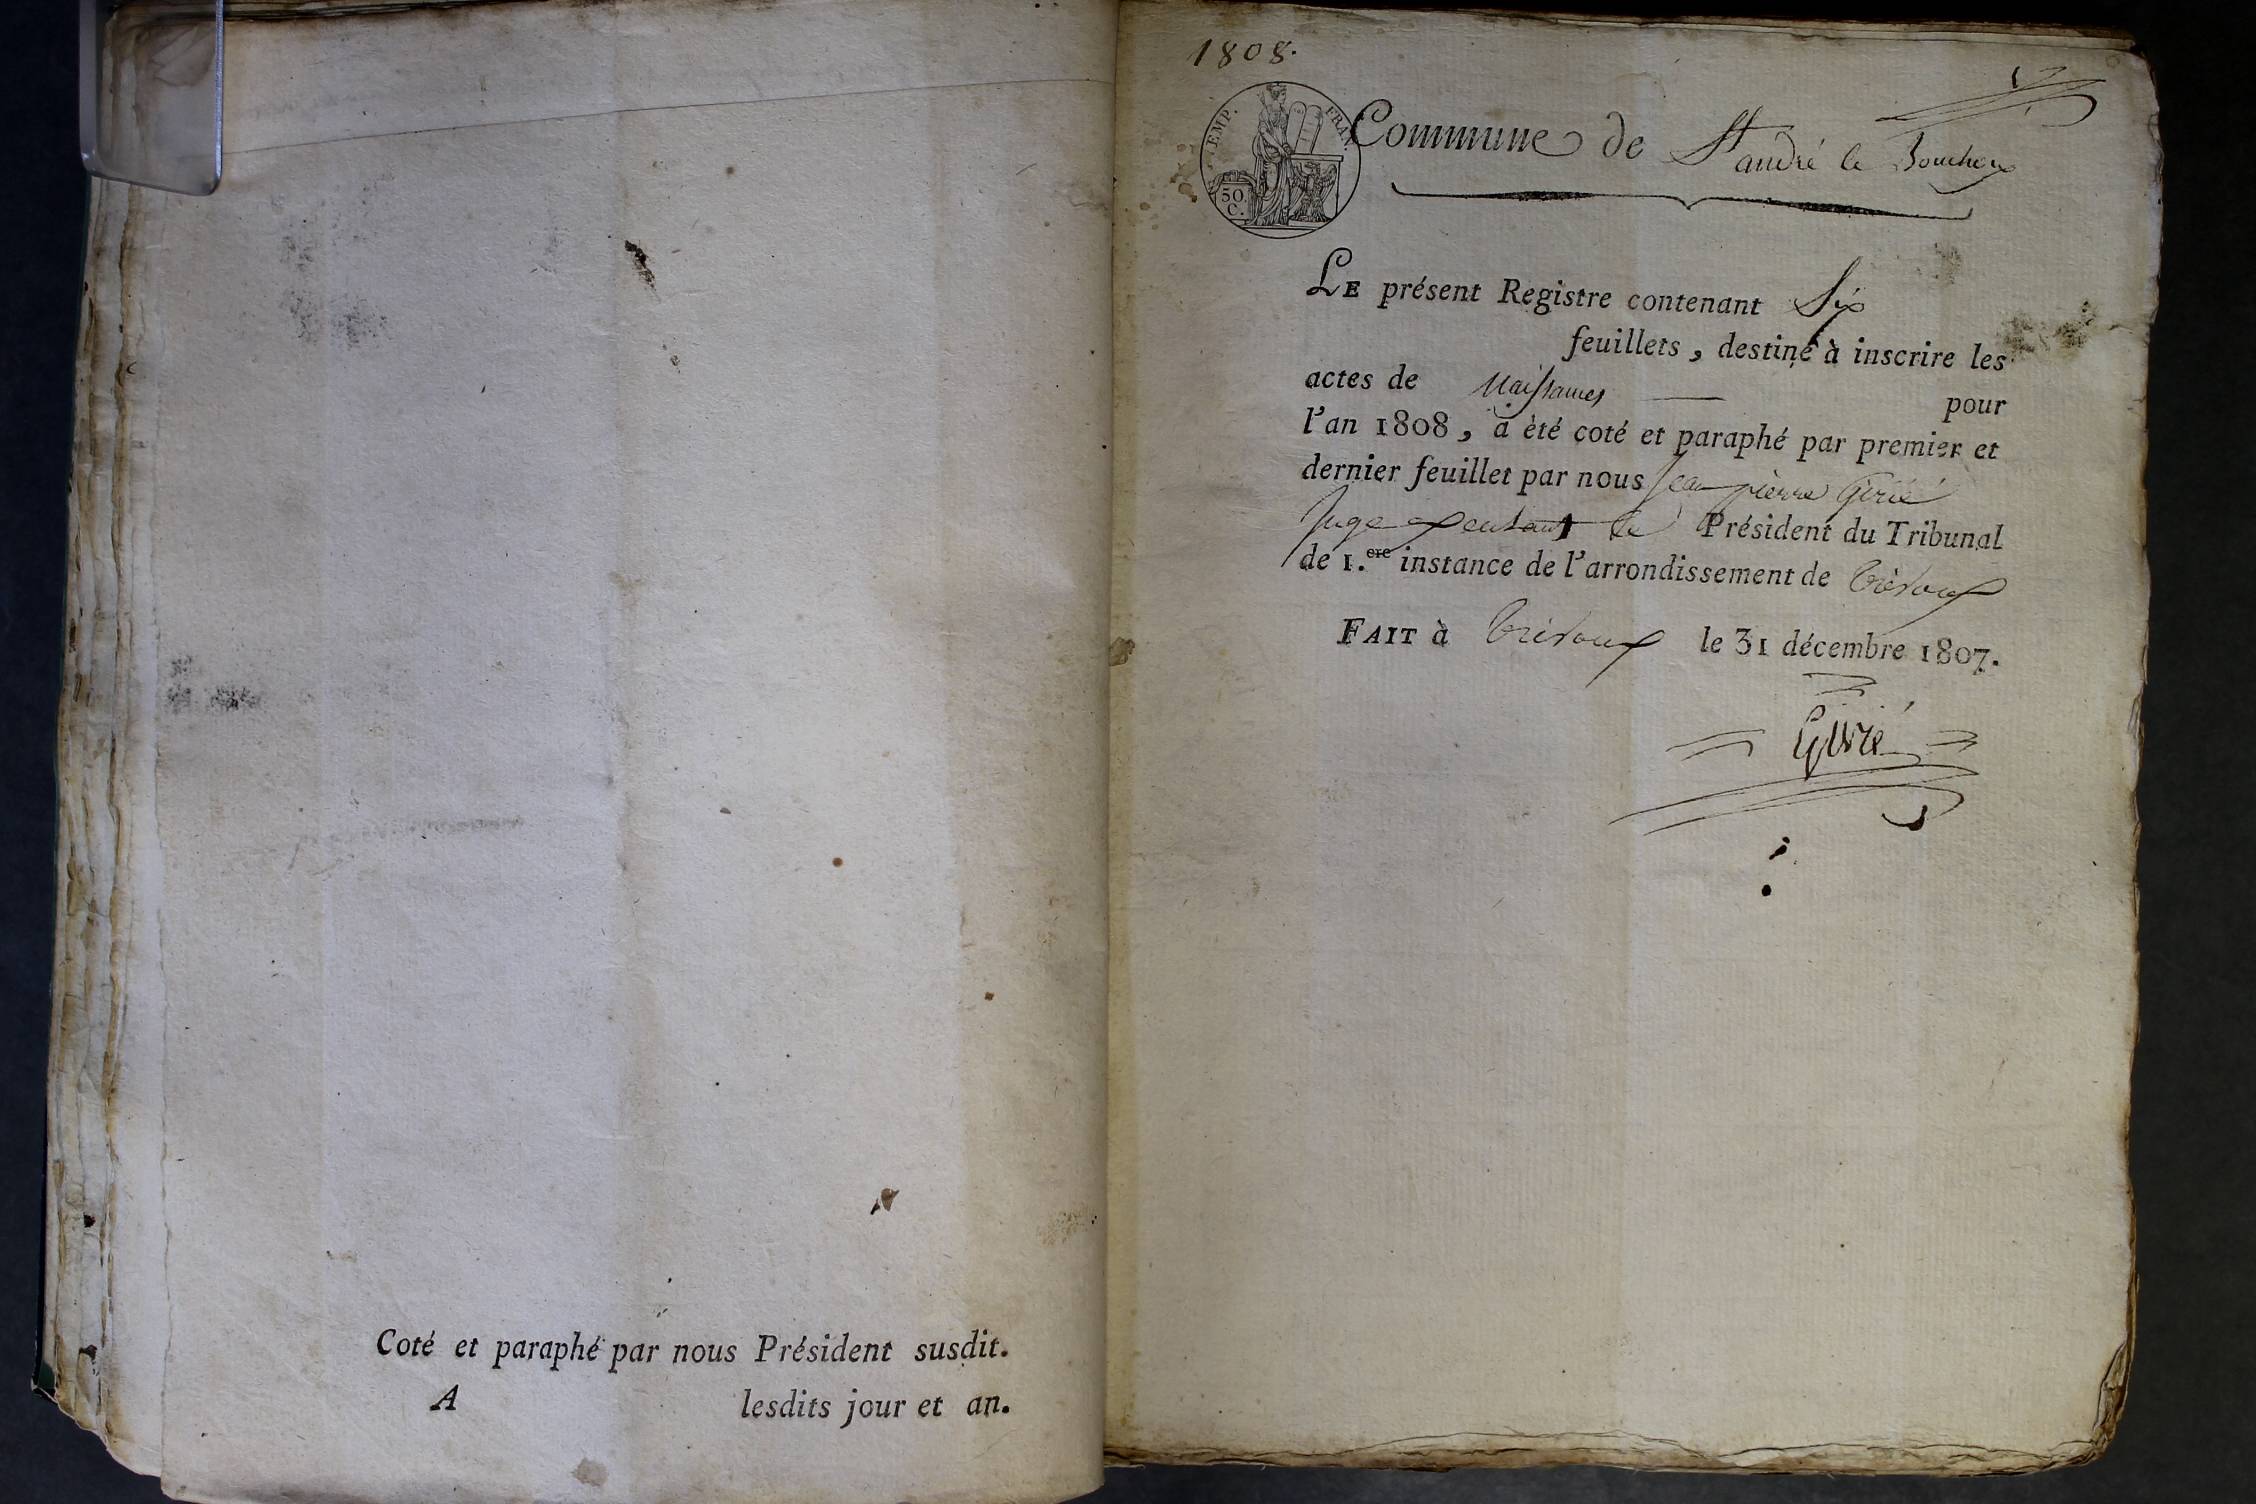 Coté et paraphé par nous Président susdit.
A lesdits jour et an.
1808.
EMP. FRAN.
50 C.
Commune de St andré le Bouchoux
LE présent Registre contenant Six
feuillets, destiné à inscrire les
actes de Naissances pour
l'an 1808, a èté coté et paraphé par premier et
dernier feuillet par nous Jean pierre Girié
Juge le Président du Tribunal
de 1.ere instance de l'arrondissement de trévoux
FAIT à trévoux le 31 décembre 1807.
Girié